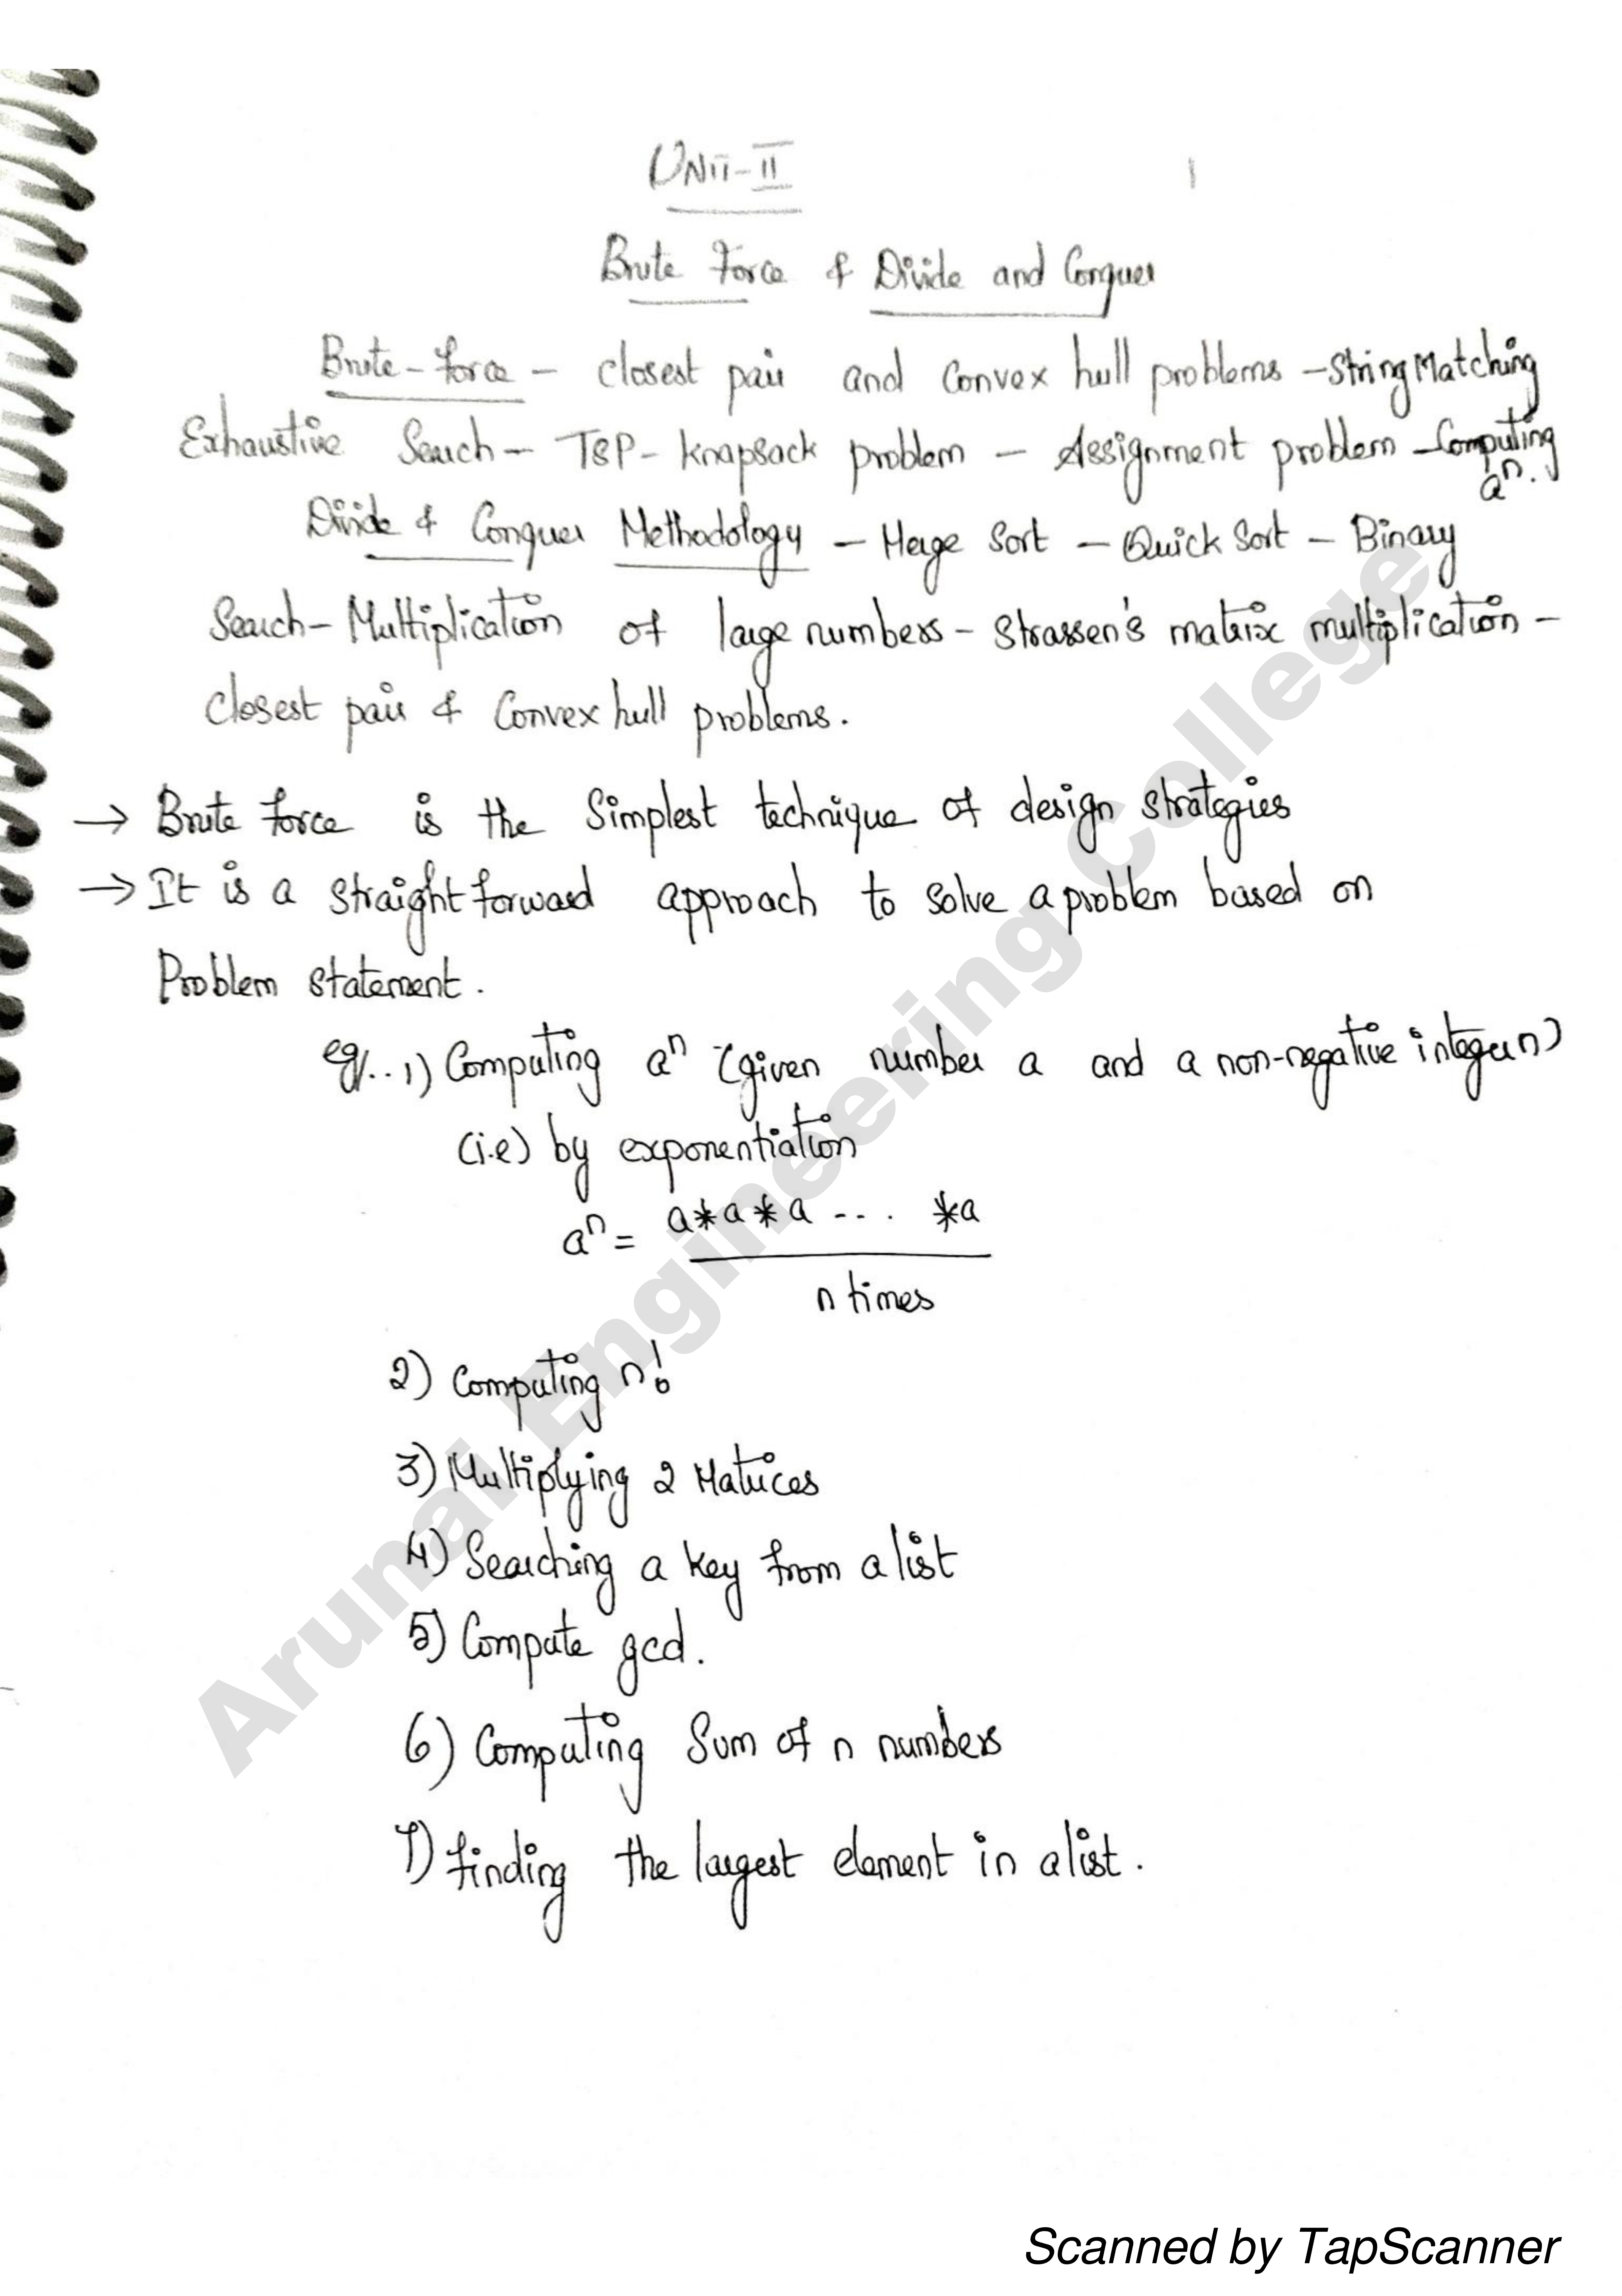 UNit-II
1
Brute Force & Divide and Conquer
Brute-force - closest pair and convex hull problems - String Matching
Exhaustive Search - TSP - knapsack problem - Assignment problem - Computing
aⁿ.
Divide & Conquer Methodology - Merge Sort - Quick Sort - Binary
Search - Multiplication of large numbers - Strassen's matrix multiplication -
closest pair & Convex hull problems.
→ Brute force is the Simplest technique of design strategies
→ It is a straight forward approach to solve a problem based on
Problem statement.
eg/.. 1) Computing aⁿ (given number a and a non-negative integer n)
(i.e) by exponentiation
aⁿ = a*a*a --.. *a
n times
2) Computing n!
3) Multiplying 2 Matrices
4) Searching a key from a list
5) Compute gcd.
6) Computing Sum of n numbers
7) finding the largest element in a list.
Arunai Engineering College
Scanned by TapScanner